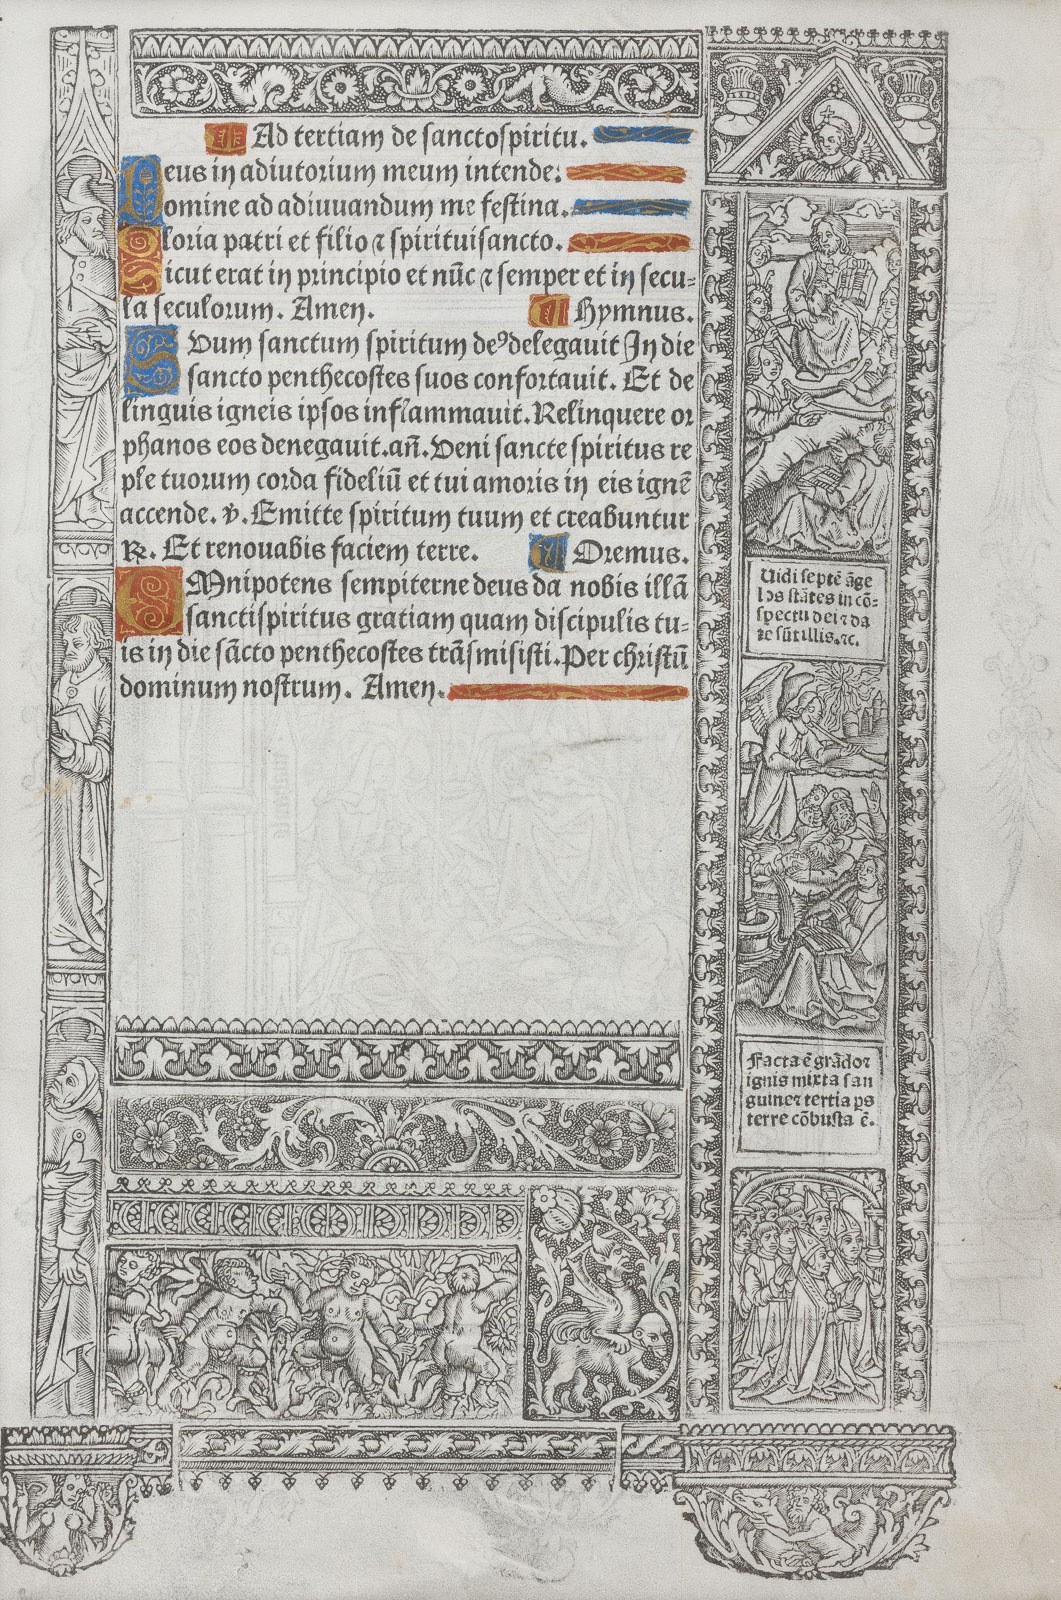 Ad tertiam de sanctospiritu.
Deus in adiutorium meum intende:
Domine ad adiuuandum me festina.
Gloria patri et filio ⁊ spirituisancto.
Sicut erat in principio et nūc ⁊ semper et in secu=
la seculorum. Amen. Hymnus.
SUum sanctum spiritum deꝰ delegauit In die
sancto penthecostes suos confortauit. Et de
linguis igneis ipsos inflammauit. Relinquere or
phanos eos denegauit. añ. Veni sancte spiritus re
ple tuorum corda fideliū et tui amoris in eis ignē
accende. ℣. Emitte spiritum tuum et creabuntur
℟. Et renouabis faciem terre. Oremus.
OMnipotens sempiterne deus da nobis illā
sanctispiritus gratiam quam discipulis tu=
is in die sācto penthecostes trāsmisisti. Per christū
dominum nostrum. Amen.
Uidi septē āge
los stātes in cō=
spectu dei ⁊ da
te sūt illis. ⁊c.
Facta ē grādo ⁊
ignis mixta san
guine ⁊ tertia ps
terre cōbusta ē.